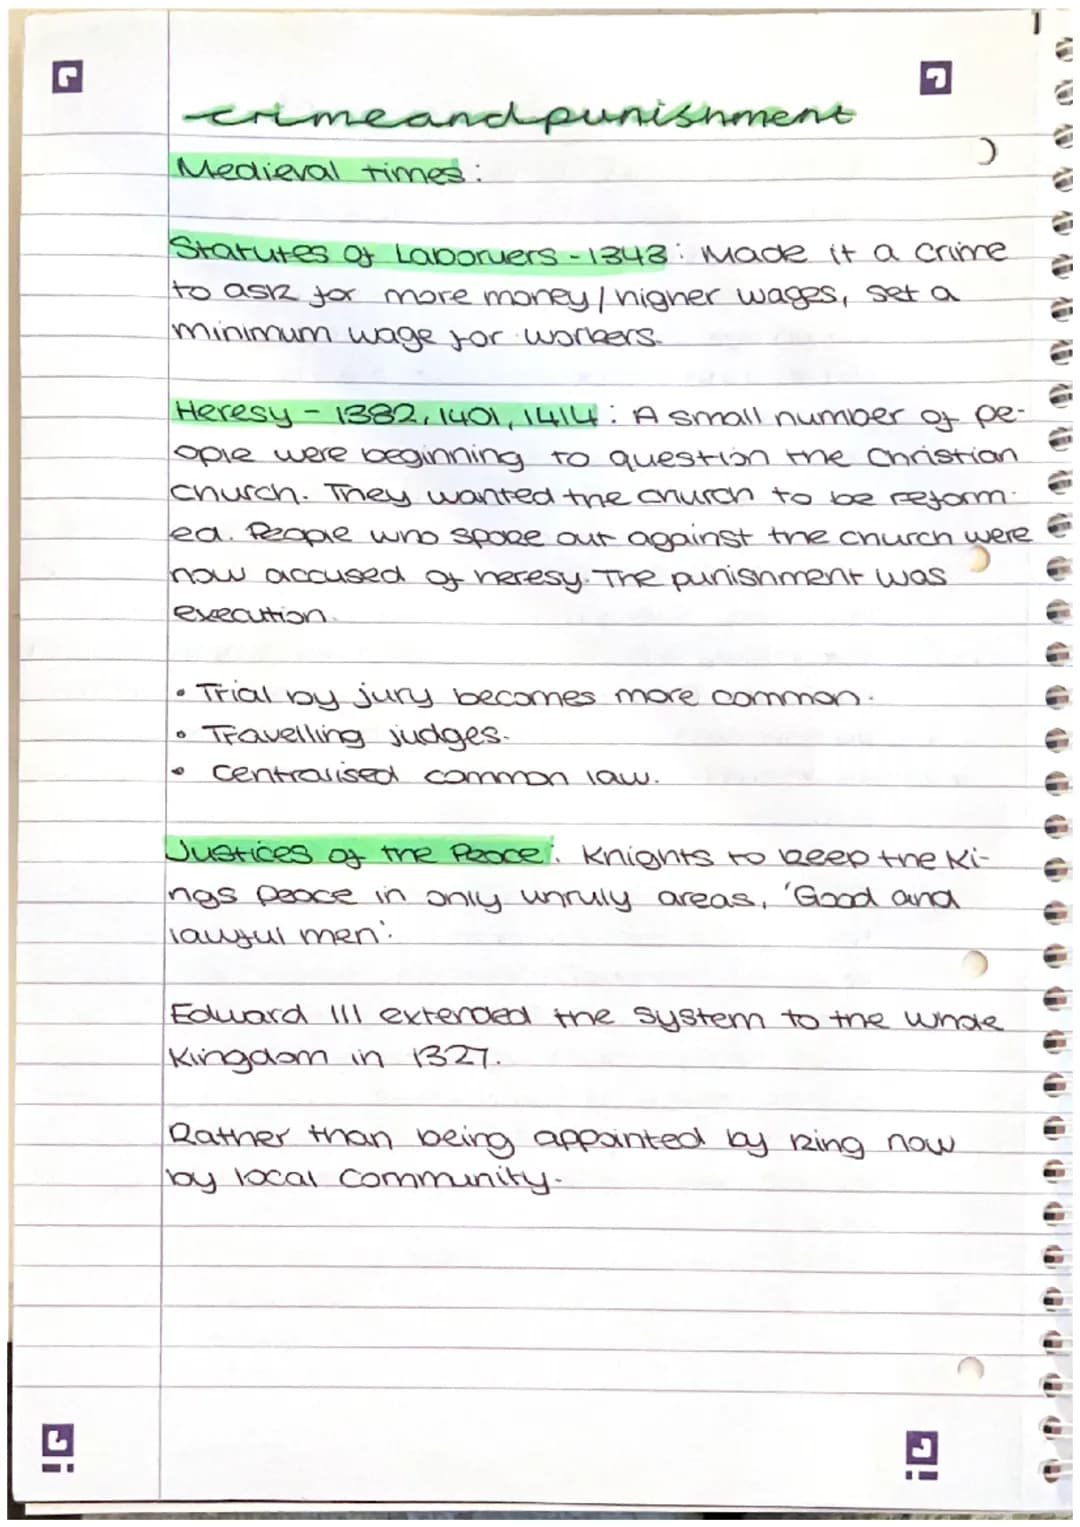 1
crimeandpunishment
Medieval times:
Statutes of Laboruers - 1343: Made it a crime
to ask for more money/higher wages, set a
minimum wage for workers.
Heresy - 1382, 1401, 1414: A small number of pe-
ople were beginning to question the Christian
church. They wanted the church to be reform-
ed. People who spoke out against the church were
now accused of heresy. The punishment was
execution.
• Trial by jury becomes more common.
• Travelling judges.
• Centralised common law.
Justices of the Peace: Knights to keep the Ki-
ngs peace in only unruly areas, 'Good and
lawful men'.
Edward III extended the system to the whole
Kingdom in 1327.
Rather than being appointed by king now
by local community.